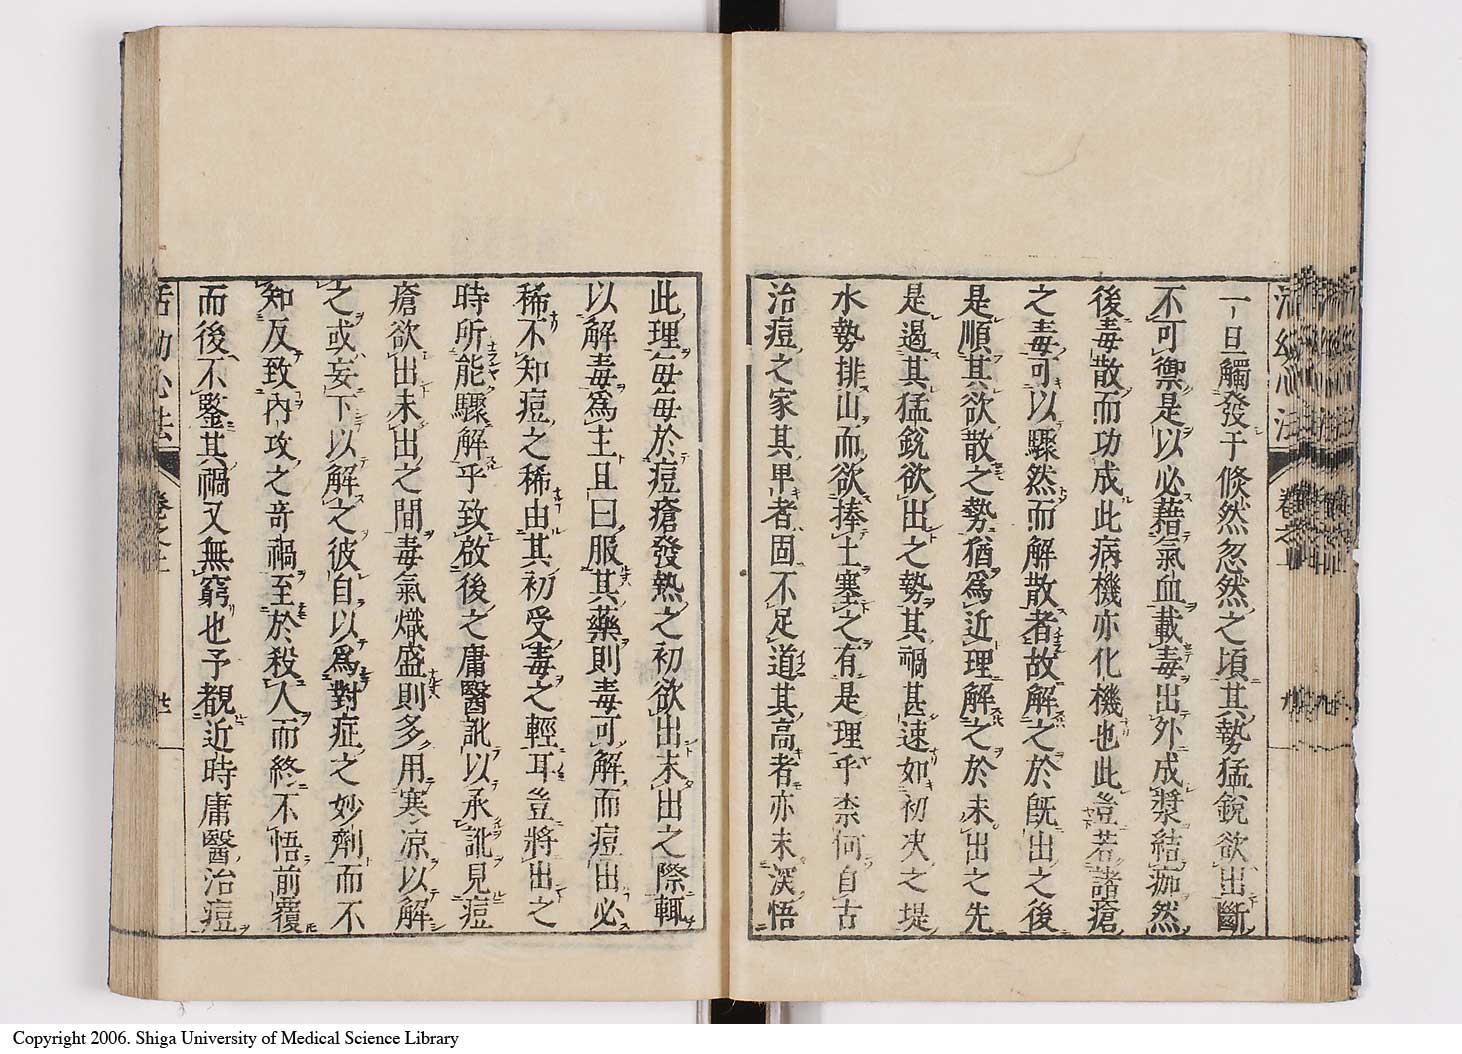 一旦觸發于倏然忽然之頃其勢猛銳欲出斷
不可禦是以必藉氣血載毒出外成漿結痂然
後毒散而功成此病機亦化機也此豈若諸瘡
之毒可以驟然而解散者故解之於既出之後
是順其欲散之勢猶爲近理解之於未出之先
是遏其猛銳欲出之勢其禍甚速如初决之堤
水勢排山而欲捧土塞之有是理乎柰何自古
治痘之家其卑者固不足道其高者亦未深悟
此理每毎於痘瘡發熱之初欲出未出之際輒
以解毒爲主且曰服其藥則毒可解而痘出必
稀不知痘之稀由其初受毒之輕耳豈將出之
時所能驟解乎致啟後之庸醫訛以承訛見痘
瘡欲出未出之間毒氣熾盛則多用寒凉以解
之或妄下以解之彼自以爲對症之妙劑而不
知反致內攻之奇禍至於殺人而終不悟前覆
而後不鑒其禍又無窮也予覩近時庸醫治痘
活幼心法
Copyright 2006. Shiga University of Medical Science Library